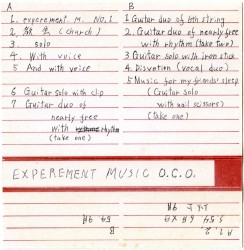 A
1. experement M. NO.1
2. 教会 (church)
3. solo
4. With voice
5 And with voice
6 Guitar solo with clip
7 Guitar duo of
nearly free
with rhythm
(take one)
B
1 Guitar duo of 6th string
2. Guitar duo of nearly free
with rhythm (take two)
3 Guitar solo with iron stick
4. Disvation (vocal duo)
5 Music for my friends' sleep
(Guitar solo
with nail scissors)
(take one)
EXPEREMENT MUSIC O.C.O.
B